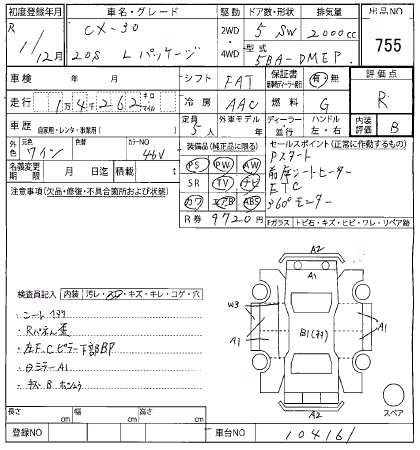 初度登録年月 車名・グレード 駆動 ドア数・形状 排気量 出品NO
R 1/12月 CX-30 2WD 5 SW 2000cc 755
20S Lパッケージ 4WD 型式 5BA-DMEP
車検 年 月 シフト FAT 保証書 有・無 評価点
走行 1万4262 キロ マイル 冷房 AAC 燃料 G R
車歴 自家用・レンタ・事業用( ) 定員 5人 外車モデル 年 ディーラー 並行 ハンドル 左・右 内装評価 B
外色 元色 ワイン 色替 カラーNO 46V
装備品(純正品に限る) セールスポイント(正常に作動するもの)
PS PW AW Pスタート
名義変更期限 月 日迄 積載 t SR TV ナビ 前席シートヒーター
注意事項(欠品・修復・不具合箇所および状態) カワ エアB ABS ETC
360°モニター
R券 9720円 Fガラス トビ石・キズ・ヒビ・ワレ・リペア跡
A2
A1
検査員記入 内装 汚レ・スレ・キズ・キレ・コゲ・穴
W3
A1
A1
・シート
・Rパネル歪
・左F Cピラー下部BP
・ミラーA1
・キズ B
A2
スペア
長さ cm 幅 cm 高さ cm
登録NO 車台NO 104161